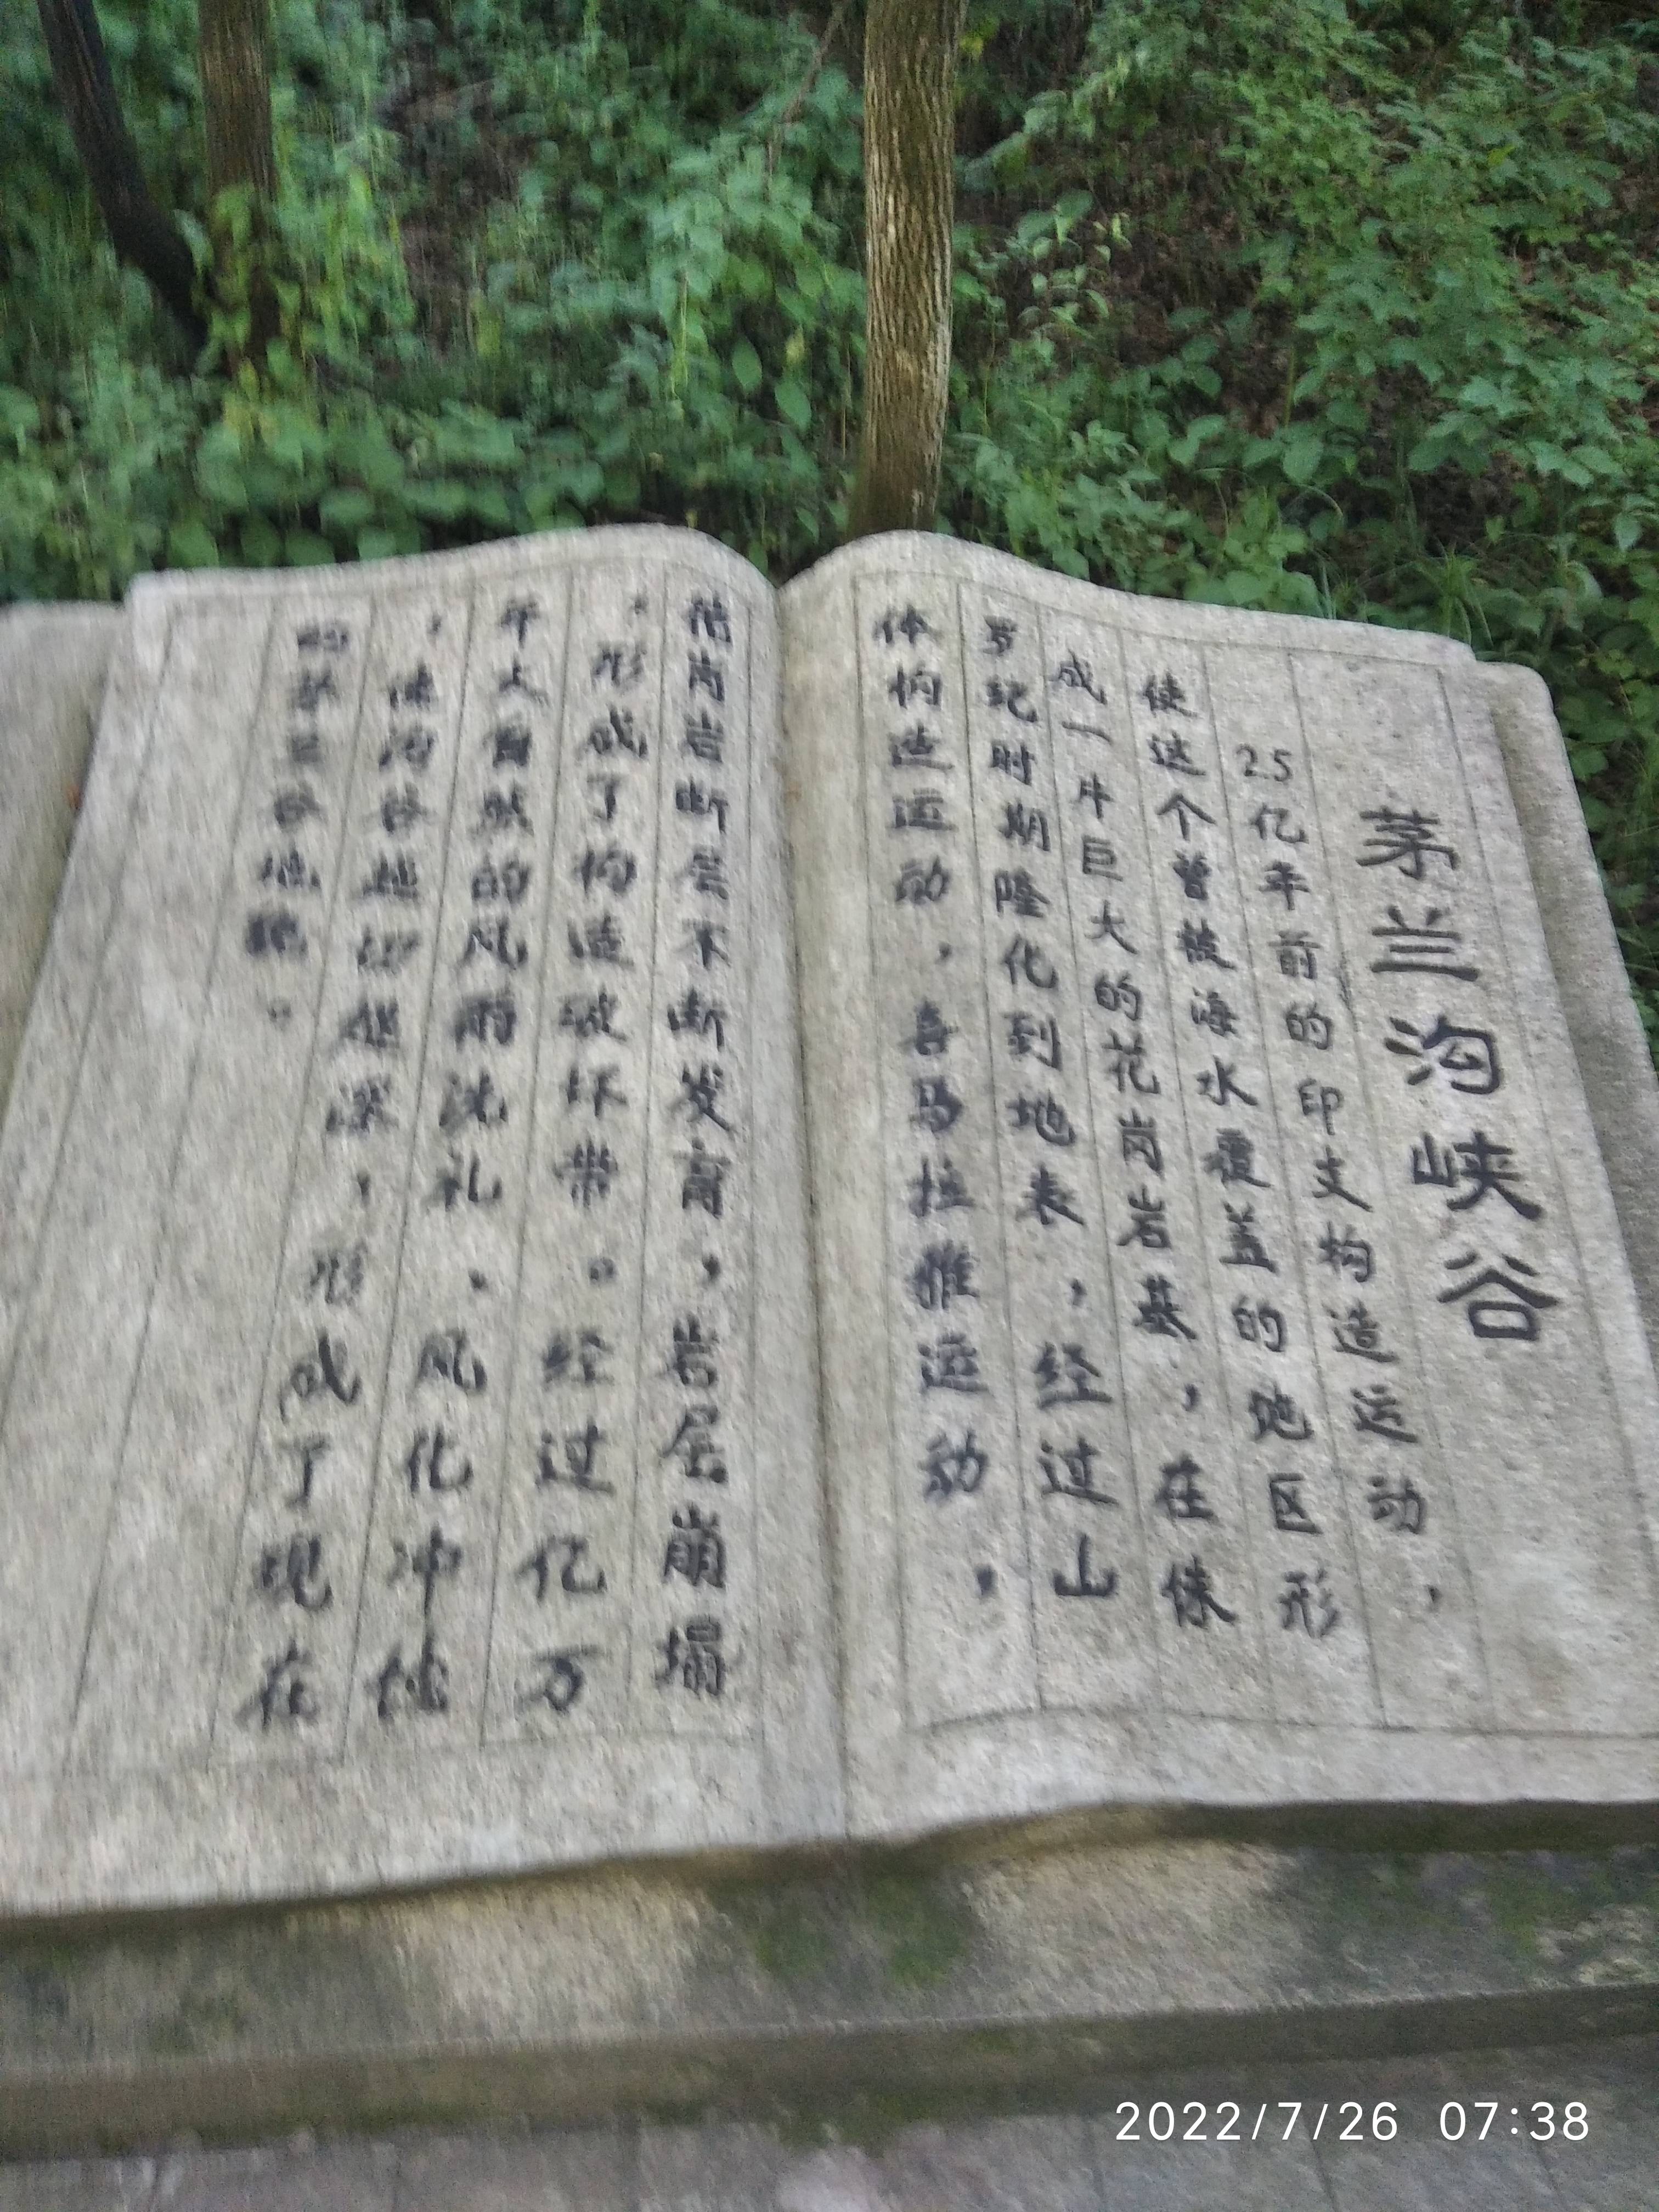 茅兰沟峡谷
25亿年前的印支构造运动,
使这个曾被海水覆盖的地区形
成一片巨大的花岗岩基,在侏
罗纪时期隆化到地表,经过山
体构造运动,喜马拉雅运动,
岗岩断层不断发育,岩层崩塌
,形成了构造破坏带。经过亿万
年大自然的风雨洗礼、风化冲蚀
,使沟谷越切越深,形成了现在
的茅兰谷地貌。
2022/7/26 07:38